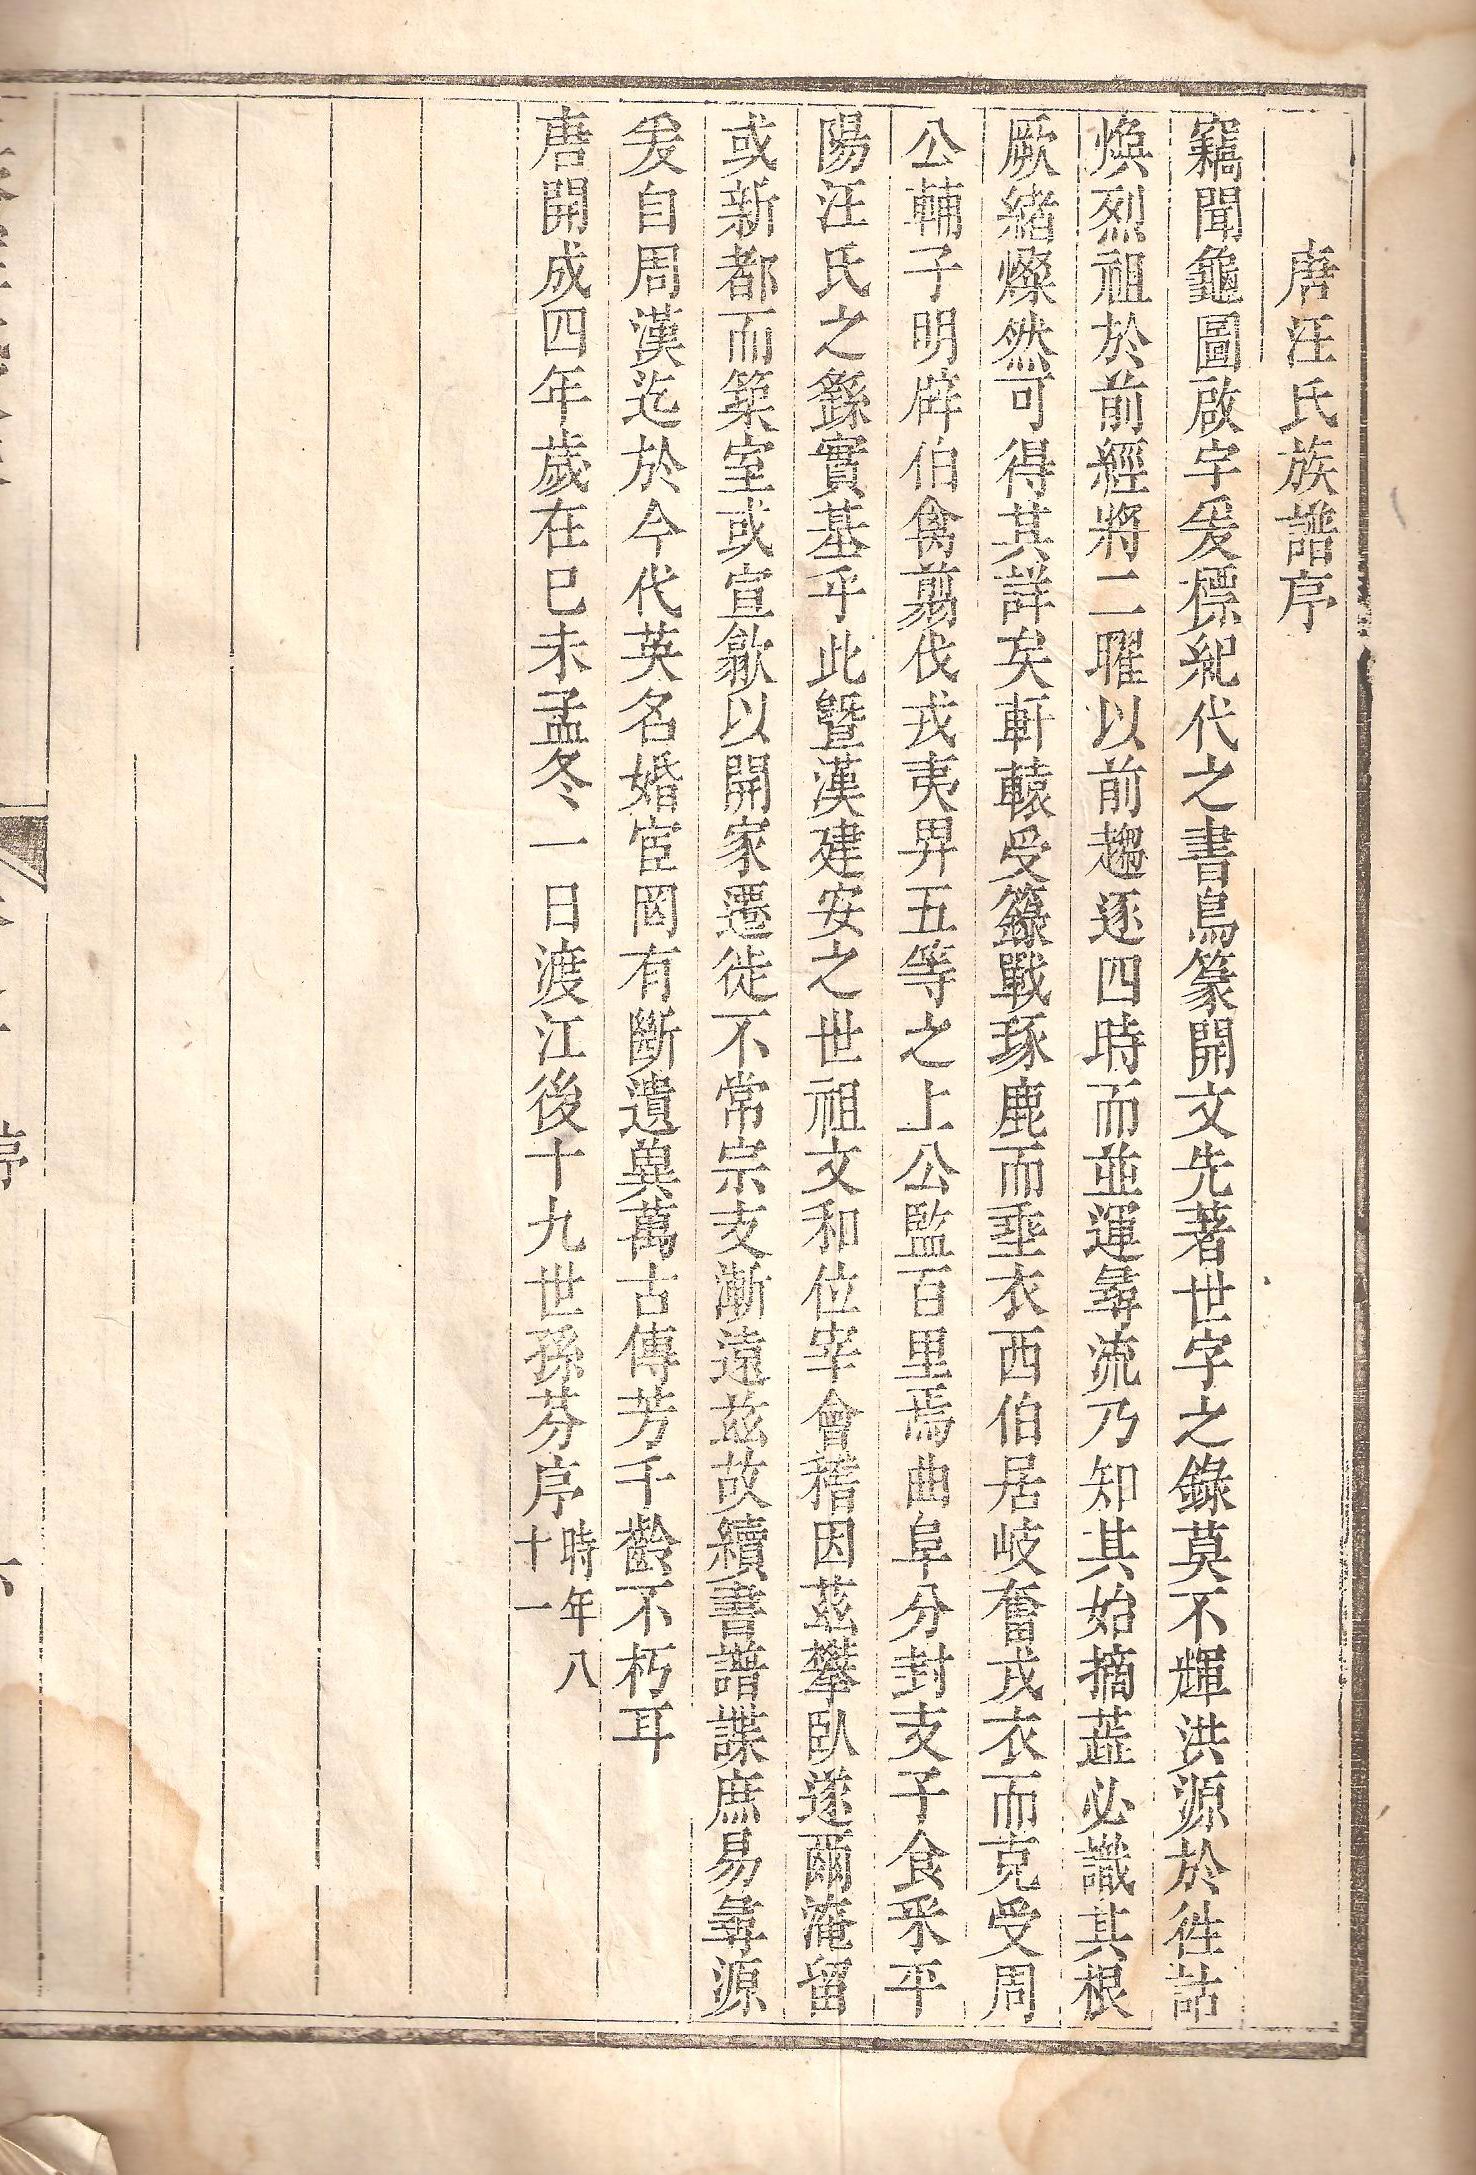 唐汪氏族譜序
竊聞龜圖啟字爰標紀代之書鳥篆開文先著世字之錄莫不輝洪源於徃詁
煥烈祖於前經將二曜以前趨逐四時而並運尋流乃知其始摘蘂必識其根
厥緒燦然可得其詳矣軒轅受籙戰琢鹿而垂衣西伯居岐奮戎衣而克受周
公輔子明辟伯禽翦伐戎夷畀五等之上公監百里焉曲阜分封支子食釆平
陽汪氏之繇實基乎此暨漢建安之世祖文和位宰會稽因茲攀臥遂爾淹留
或新都而築室或宣歙以開家遷徙不常宗支漸遠茲故續書譜諜庶易尋源
爰自周漢迄於今代英名婚宦罔有斷遺兾萬古傳芳千齡不朽耳
唐開成四年歲在巳未孟冬一日渡江後十九世孫芬序
時年八
十一
序
六